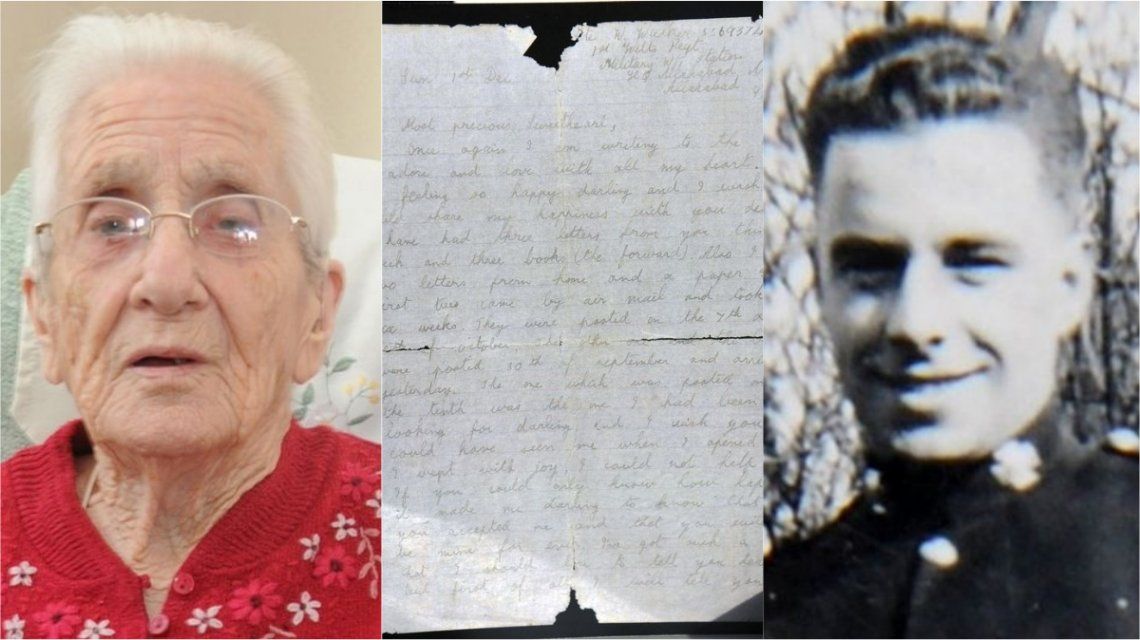 W Walker 5569374
1st Wilts Regt
Military W/ Station
Sun 1st Dec
Most precious Sweetheart,
Once again I am writing to the
adore and love with all my heart.
feeling so happy darling and I wish
share my happiness with you
have had three letters from you this
and three books (the forward) Also I
letters from home and a paper
two came by air mail and took
weeks. They were posted on the 7th
of October, the other
were posted 30th of September and
yesterday. The one which was posted on
the tenth was the one I had been
looking for darling, and I wish you
could have seen me when I opened
I wept with joy, I could not help
If you could only know how
made me darling to know that
you accepted me and that you
be mine for ever. I've got such a
but I should to tell you
but first of all tell you